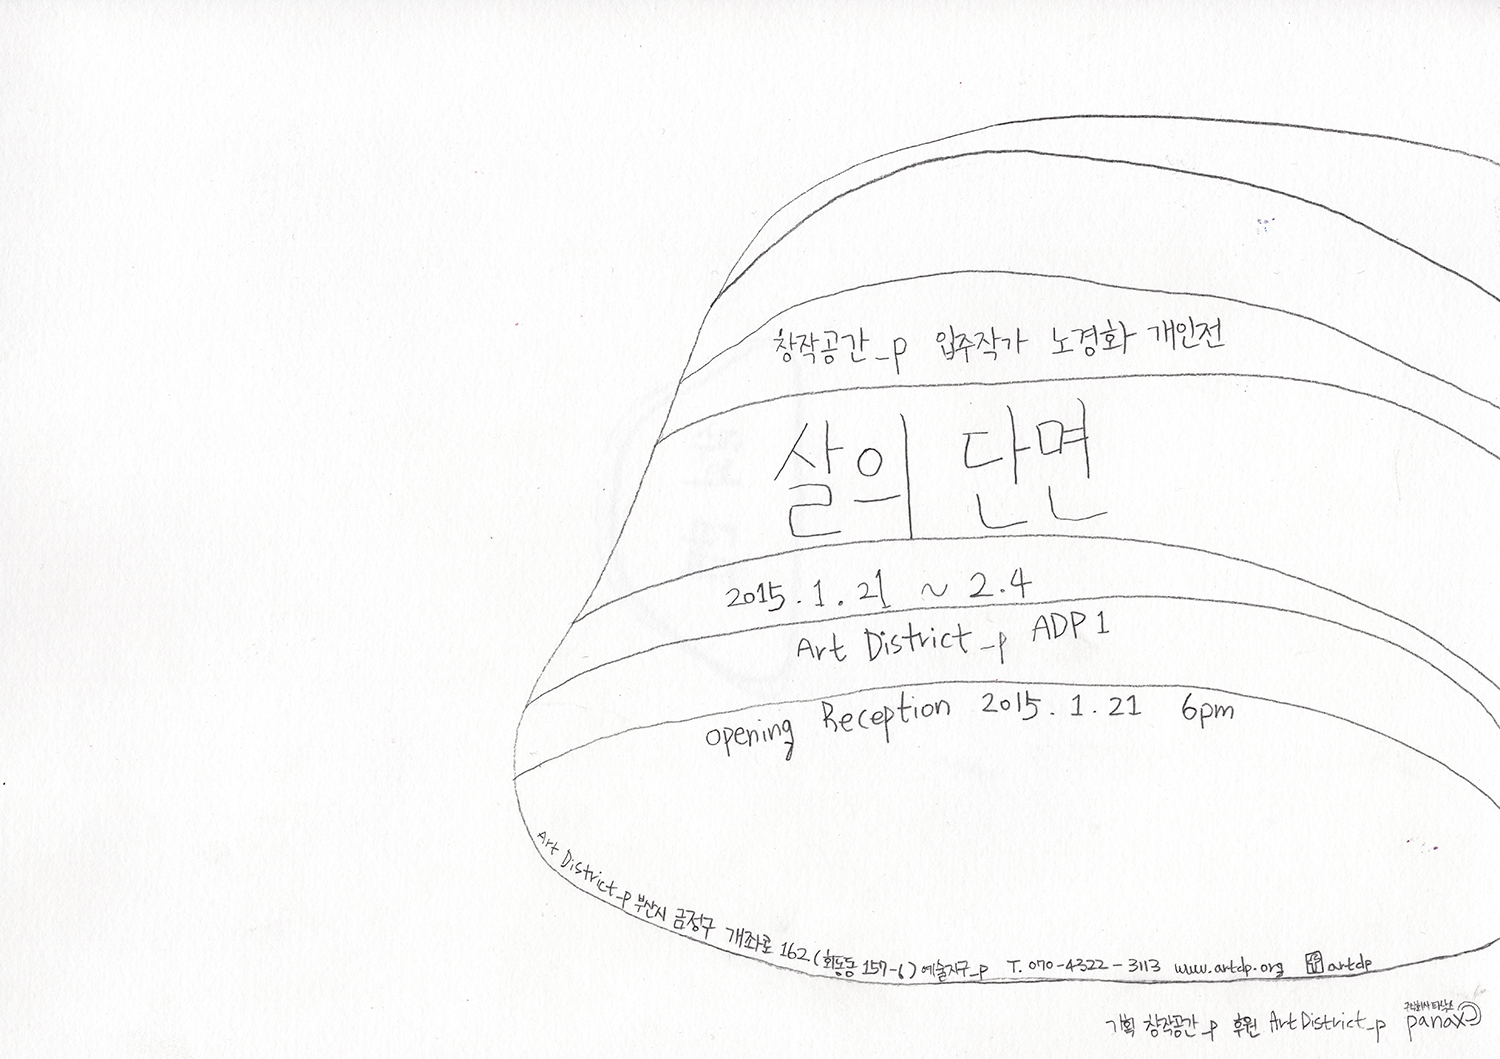 창작공간_p 입주작가 노경화 개인전
삶의 단면
2015.1.21 ~ 2.4
Art District_p ADP1
opening Reception 2015.1.21 6pm
Art District_p 부산시 금정구 개좌로 162 (회동동 157-6) 예술지구_p T. 070-4322-3113 www.artdp.org artdp
기획 창작공간_p 후원 Art District_p panax